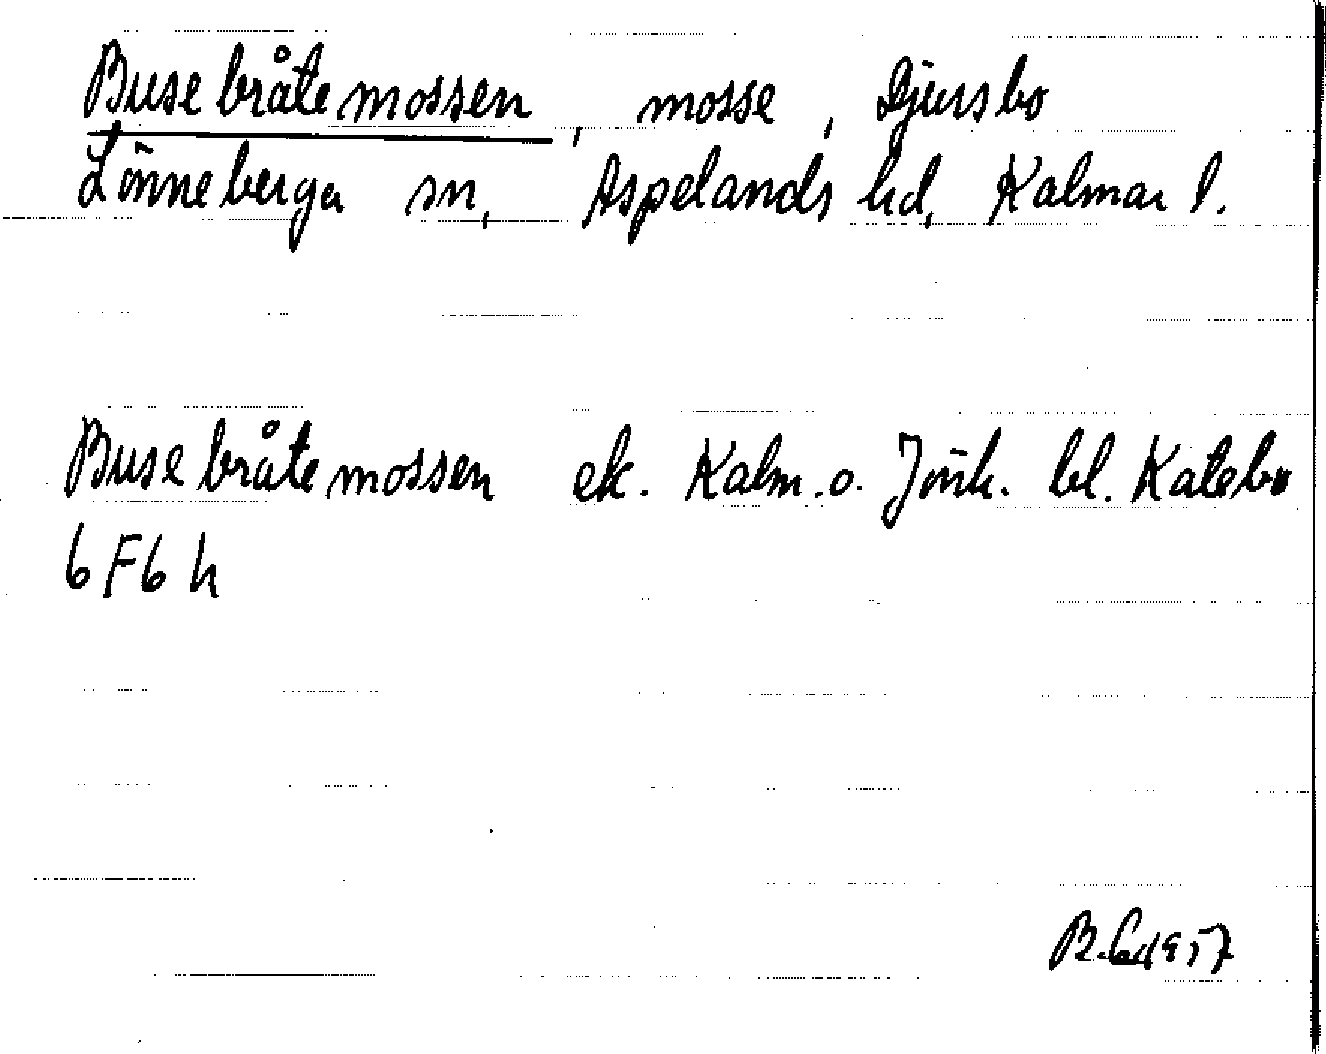 Busebråtemossen, mosse, Djursbo
Lönneberga sn, Aspelands hd, Kalmar l.
Busebråtemossen ek. Kalm. o. Jönk. bl. Katebo
6F6 h
1957